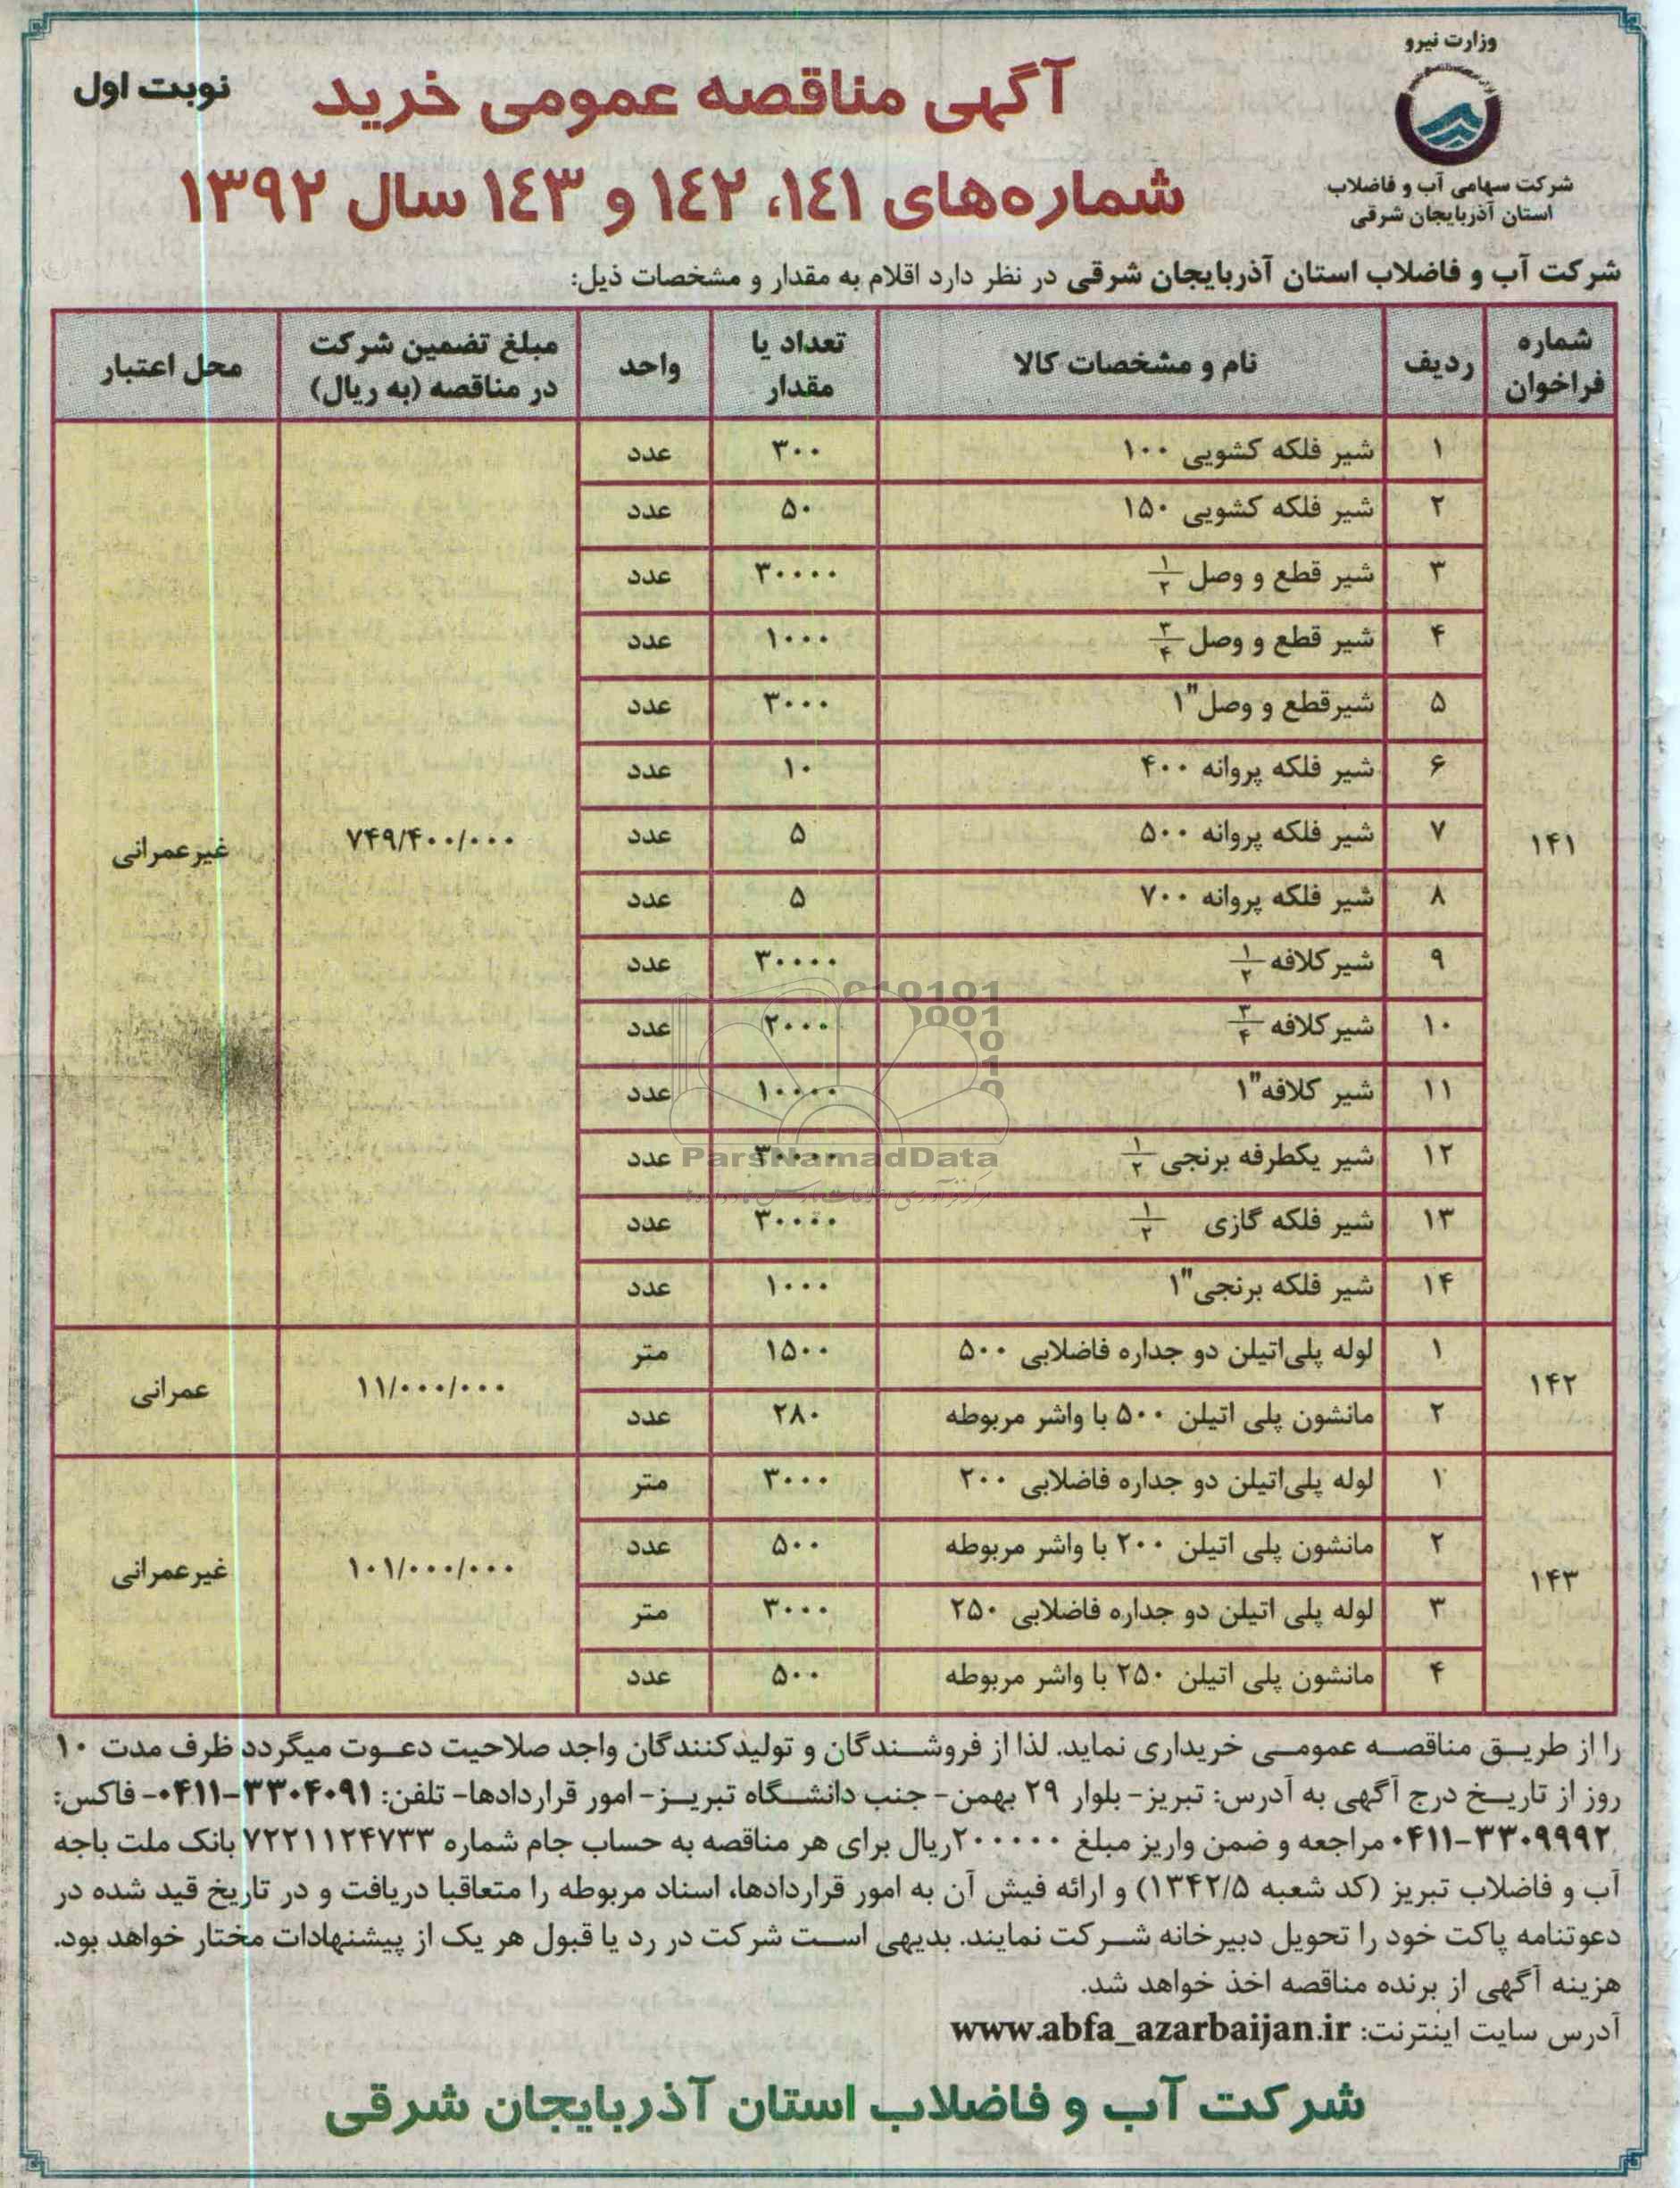 وزارت نیرو
شرکت سهامی آب و فاضلاب
استان آذربایجان شرقی
نوبت اول
آگهی مناقصه عمومی خرید
شماره‌های ١٤١، ١٤٢ و ١٤٣ سال ١٣٩٢
شرکت آب و فاضلاب استان آذربایجان شرقی در نظر دارد اقلام به مقدار و مشخصات ذیل:
شماره فراخوان | ردیف | نام و مشخصات کالا | تعداد یا مقدار | واحد | مبلغ تضمین شرکت در مناقصه (به ریال) | محل اعتبار
۱۴۱ | ۱ | شیر فلکه کشویی ۱۰۰ | ۳۰۰ | عدد | ۷۴۹/۴۰۰/۰۰۰ | غیرعمرانی
۲ | شیر فلکه کشویی ۱۵۰ | ۵۰ | عدد
۳ | شیر قطع و وصل ۱/۲ | ۳۰۰۰۰ | عدد
۴ | شیر قطع و وصل ۳/۴ | ۱۰۰۰ | عدد
۵ | شیرقطع و وصل "۱ | ۳۰۰۰ | عدد
۶ | شیر فلکه پروانه ۴۰۰ | ۱۰ | عدد
۷ | شیر فلکه پروانه ۵۰۰ | ۵ | عدد
۸ | شیر فلکه پروانه ۷۰۰ | ۵ | عدد
۹ | شیرکلافه ۱/۲ | ۳۰۰۰۰ | عدد
۱۰ | شیرکلافه ۳/۴ | ۲۰۰۰ | عدد
۱۱ | شیر کلافه "۱ | ۱۰۰۰۰ | عدد
۱۲ | شیر یکطرفه برنجی ۱/۲ | ۳۰۰۰۰ | عدد
۱۳ | شیر فلکه گازی ۱/۲ | ۳۰۰۰۰ | عدد
۱۴ | شیر فلکه برنجی "۱ | ۱۰۰۰ | عدد
۱۴۲ | ۱ | لوله پلی‌اتیلن دو جداره فاضلابی ۵۰۰ | ۱۵۰۰ | متر | ۱۱/۰۰۰/۰۰۰ | عمرانی
۲ | مانشون پلی اتیلن ۵۰۰ با واشر مربوطه | ۲۸۰ | عدد
۱۴۳ | ۱ | لوله پلی‌اتیلن دو جداره فاضلابی ۲۰۰ | ۳۰۰۰ | متر | ۱۰۱/۰۰۰/۰۰۰ | غیرعمرانی
۲ | مانشون پلی اتیلن ۲۰۰ با واشر مربوطه | ۵۰۰ | عدد
۳ | لوله پلی اتیلن دو جداره فاضلابی ۲۵۰ | ۳۰۰۰ | متر
۴ | مانشون پلی اتیلن ۲۵۰ با واشر مربوطه | ۵۰۰ | عدد
ParsNamadData
را از طریق مناقصه عمومی خریداری نماید. لذا از فروشندگان و تولیدکنندگان واجد صلاحیت دعوت میگردد ظرف مدت ۱۰
روز از تاریخ درج آگهی به آدرس: تبریز- بلوار ۲۹ بهمن- جنب دانشگاه تبریز- امور قراردادها- تلفن: ۳۳۰۴۰۹۱-۰۴۱۱- فاکس:
۳۳۰۹۹۹۲-۰۴۱۱ مراجعه و ضمن واریز مبلغ ۲۰۰۰۰۰ریال برای هر مناقصه به حساب جام شماره ۷۲۲۱۱۲۴۷۳۳ بانک ملت باجه
آب و فاضلاب تبریز (کد شعبه ۱۳۴۲/۵) و ارائه فیش آن به امور قراردادها، اسناد مربوطه را متعاقبا دریافت و در تاریخ قید شده در
دعوتنامه پاکت خود را تحویل دبیرخانه شرکت نمایند. بدیهی است شرکت در رد یا قبول هر یک از پیشنهادات مختار خواهد بود.
هزینه آگهی از برنده مناقصه اخذ خواهد شد.
آدرس سایت اینترنت: www.abfa_azarbaijan.ir
شرکت آب و فاضلاب استان آذربایجان شرقی